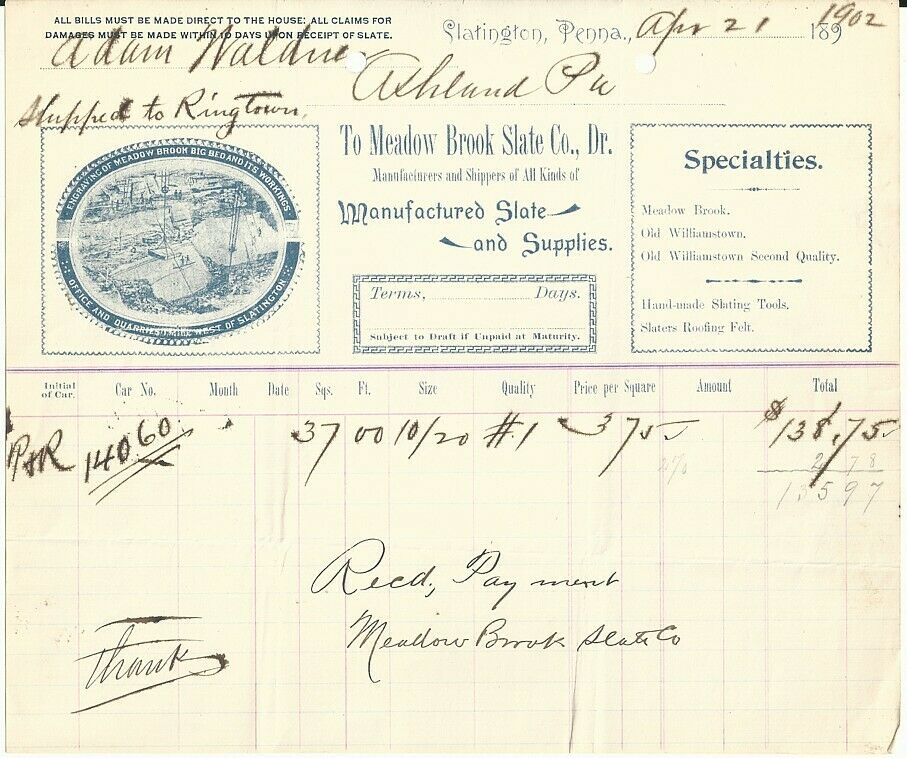 ALL BILLS MUST BE MADE DIRECT TO THE HOUSE; ALL CLAIMS FOR
DAMAGES MUST BE MADE WITHIN 10 DAYS UPON RECEIPT OF SLATE.
Slatington, Penna., Apr 21 189 1902
Adam
Ashland Pa
Shipped to Ringtown.
ENGRAVING OF MEADOW BROOK BIG BED AND ITS WORKINGS
OFFICE AND QUARRIES 1 MILE WEST OF SLATINGTON
To Meadow Brook Slate Co., Dr.
Manufacturers and Shippers of All Kinds of
Manufactured Slate
and Supplies.
Terms, Days.
Subject to Draft if Unpaid at Maturity.
Specialties.
Meadow Brook.
Old Williamstown.
Old Williamstown Second Quality.
Hand-made Slating Tools.
Slaters Roofing Felt.
Initial of Car. Car No. Month Date Sqs. Ft. Size Quality Price per Square Amount Total
P&R 14060 37 00 10/20 #1 375 $138.75
2% 2 78
135 97
Recd, Payment
Meadow Brook Slate Co
Thanks